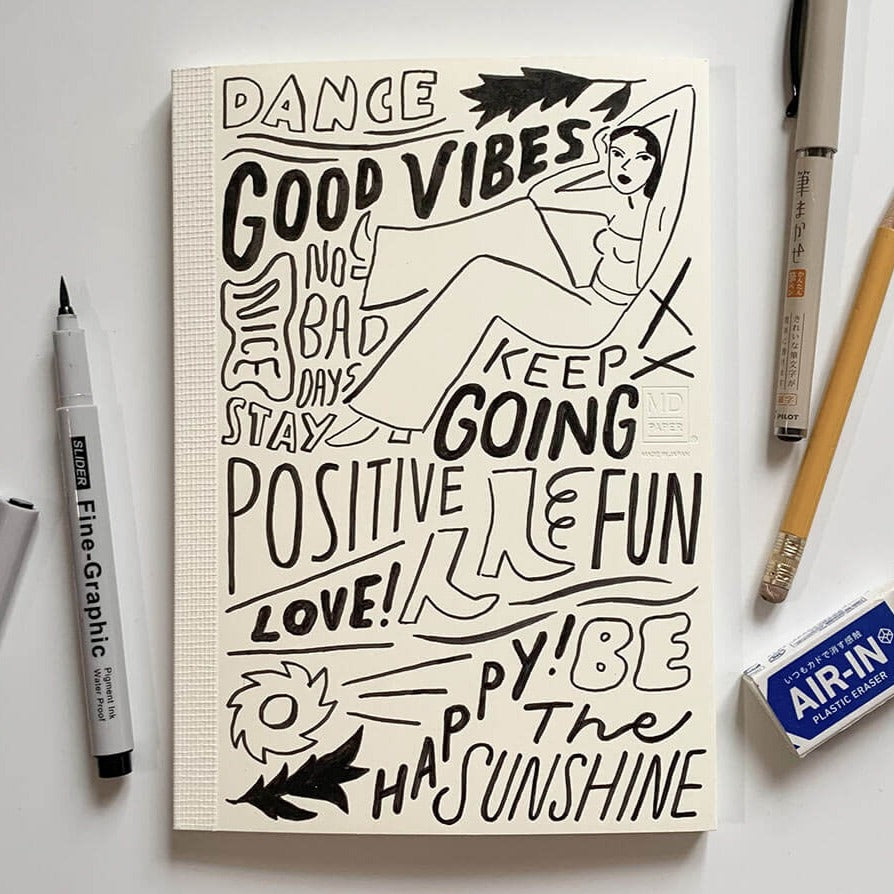 DANCE
GOOD VIBES
NICE
NO
BAD
DAYS
STAY
KEEP
GOING
MD
PAPER
MADE IN JAPAN
POSITIVE
FUN
LOVE!
HAPPY!
BE
The
SUNSHINE
SLIDER Fine-Graphic
Pigment Ink
Water Proof
筆まかせ
かんたん
きれいな筆文字が
細字
PILOT
いつもカドで消す感触
AIR-IN
PLASTIC ERASER